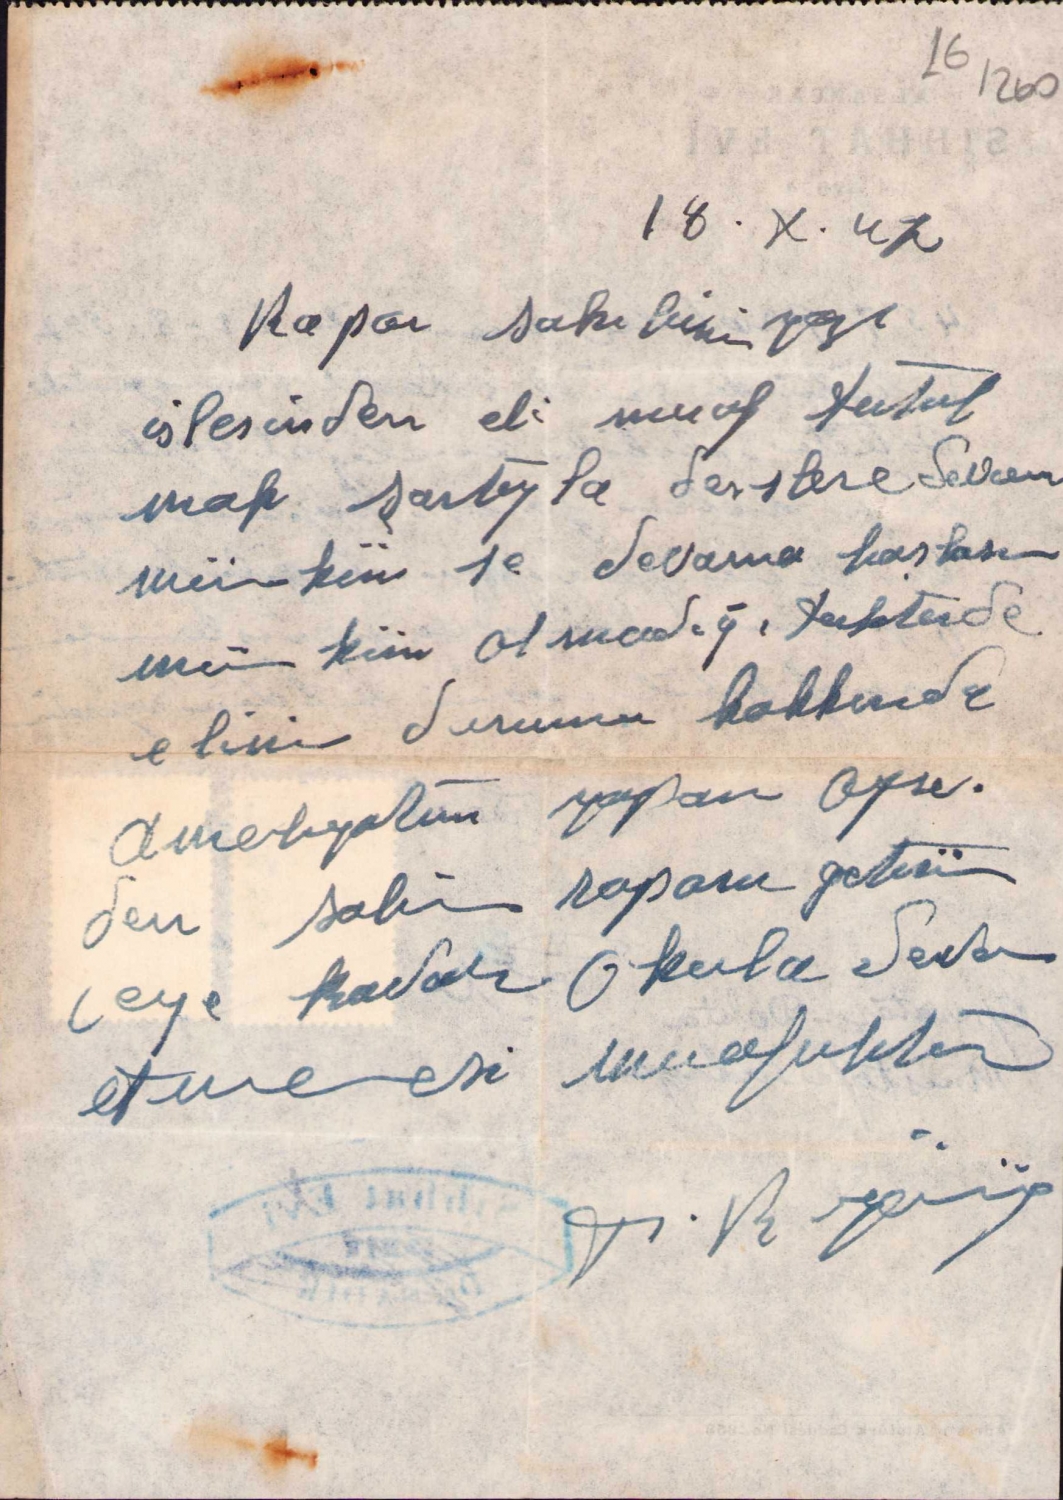 16
1260
18.X.42
Rapor sahibinin yazı
işlesinden eli muaf tutul
mak şartıyla derslere devam
mümkün se devama başlasın
mümkün olmadığı takterde
elinin durumu hakkında
ameliyatını yapan opr.
den salim raporu getirin
ceye kadar okula devam
etmemesi muafıktır